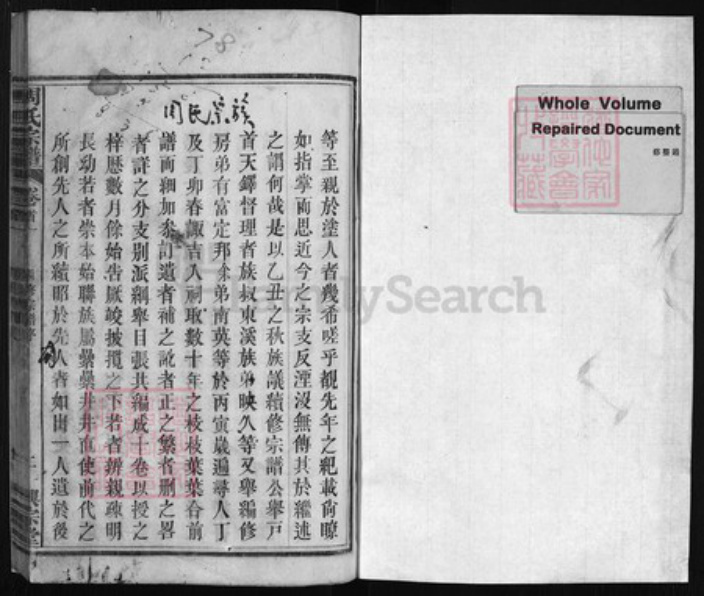 78
周氏宗族
等至親於塗人者幾希嗟乎覩先年之紀載尙瞭
如指掌而思近今之宗支反湮沒無傳其於繼述
之謂何哉是以乙丑之秋族議續修宗譜公舉戶
首天鐸督理者族叔東溪族弟映久等又舉編修
房弟有富定邦余弟南英等於丙寅歲遍尋人丁
及丁卯春諏吉入祠取數十年之枝枝葉葉合前
譜而細加叅訂遺者補之訛者正之繁者刪之畧
者詳之分支別派綱舉目張共編成十卷以授之
梓歷數月餘始告厥峻披攬之下若者辨親疎明
長幼若者崇本始聯族屬纍纍井井直使前代之
所創先人之所績昭於先人者如出一人遺於後
周氏宗譜
卷首
Whole Volume
Repaired Document
修整過
FamilySearch